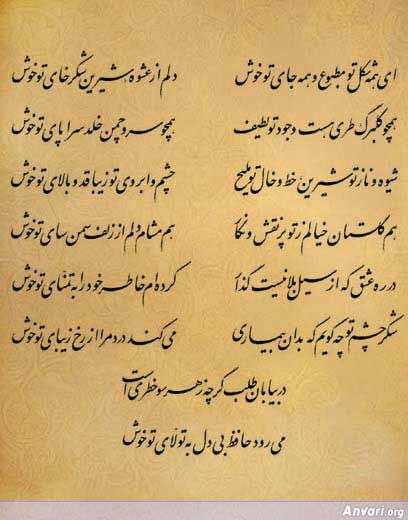 ای همه شکل تو مطبوع و همه جای تو خوش دلم از عشوه شیرین شکرخای تو خوش
همچو گلبرگ طری هست وجود تو لطیف همچو سرو چمن خلد سراپای تو خوش
شیوه و ناز تو شیرین خط و خال تو ملیح چشم و ابروی تو زیبا قد و بالای تو خوش
هم گلستان خیالم ز تو پر نقش و نگار هم مشام دلم از زلف سمن سای تو خوش
در ره عشق که از سیل بلا نیست گذار کرده ام خاطر خود را به تمنّای تو خوش
شکر چشم تو چه گویم که بدان بیماری می کند درد مرا از رخ زیبای تو خوش
در بیابان طلب گرچه ز هر سو خطری است
می رود حافظ بی دل به تولّای تو خوش
Anvari.org